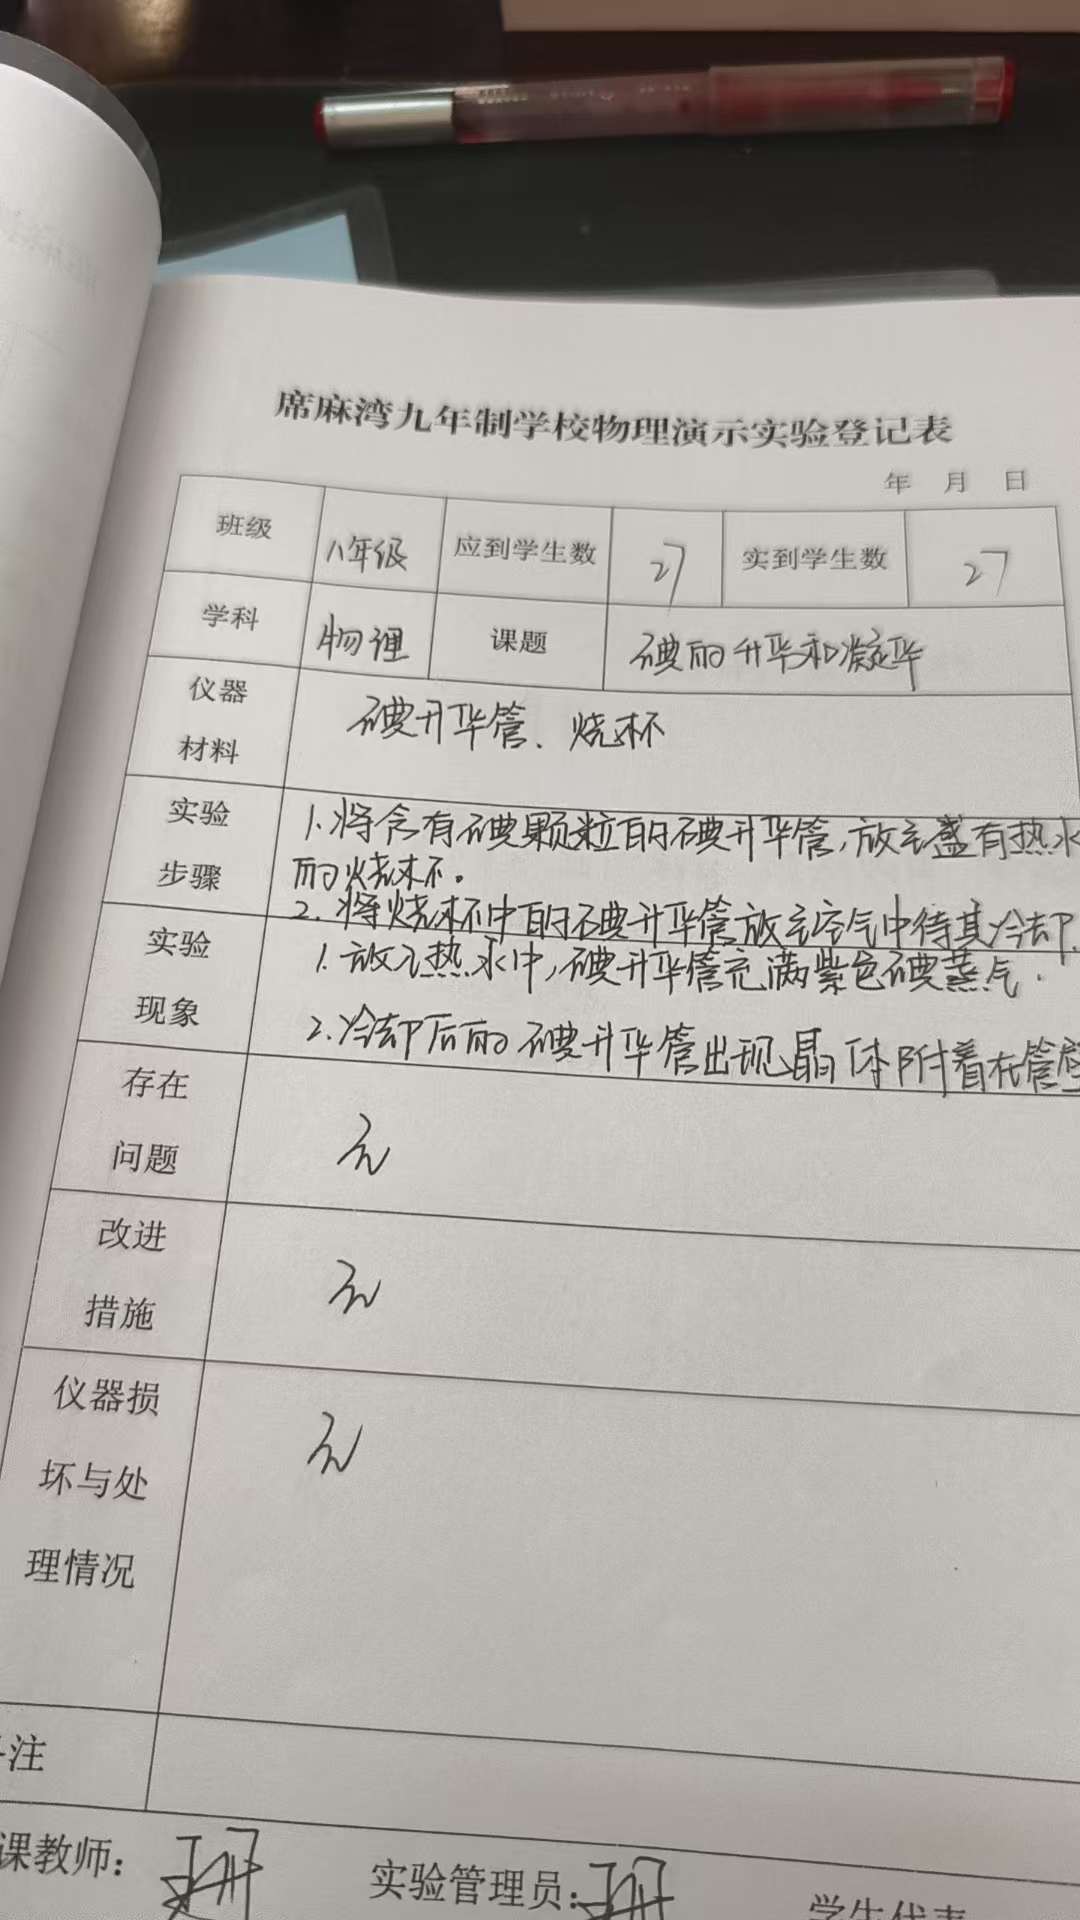 席麻湾九年制学校物理演示实验登记表
年 月 日
班级 八年级 应到学生数 27 实到学生数 27
学科 物理 课题 碘的升华和凝华
仪器
材料
碘升华管、烧杯
实验
步骤
1.将含有碘颗粒的碘升华管,放在盛有热水
的烧杯。
2.将烧杯中的碘升华管放在空气中待其冷却.
实验
现象
1.放入热水中,碘升华管充满紫色碘蒸气.
2.冷却后的碘升华管出现晶体附着在管壁
存在
问题
无
改进
措施
无
仪器损
坏与处
理情况
无
注
课教师:
实验管理员:
学生代表